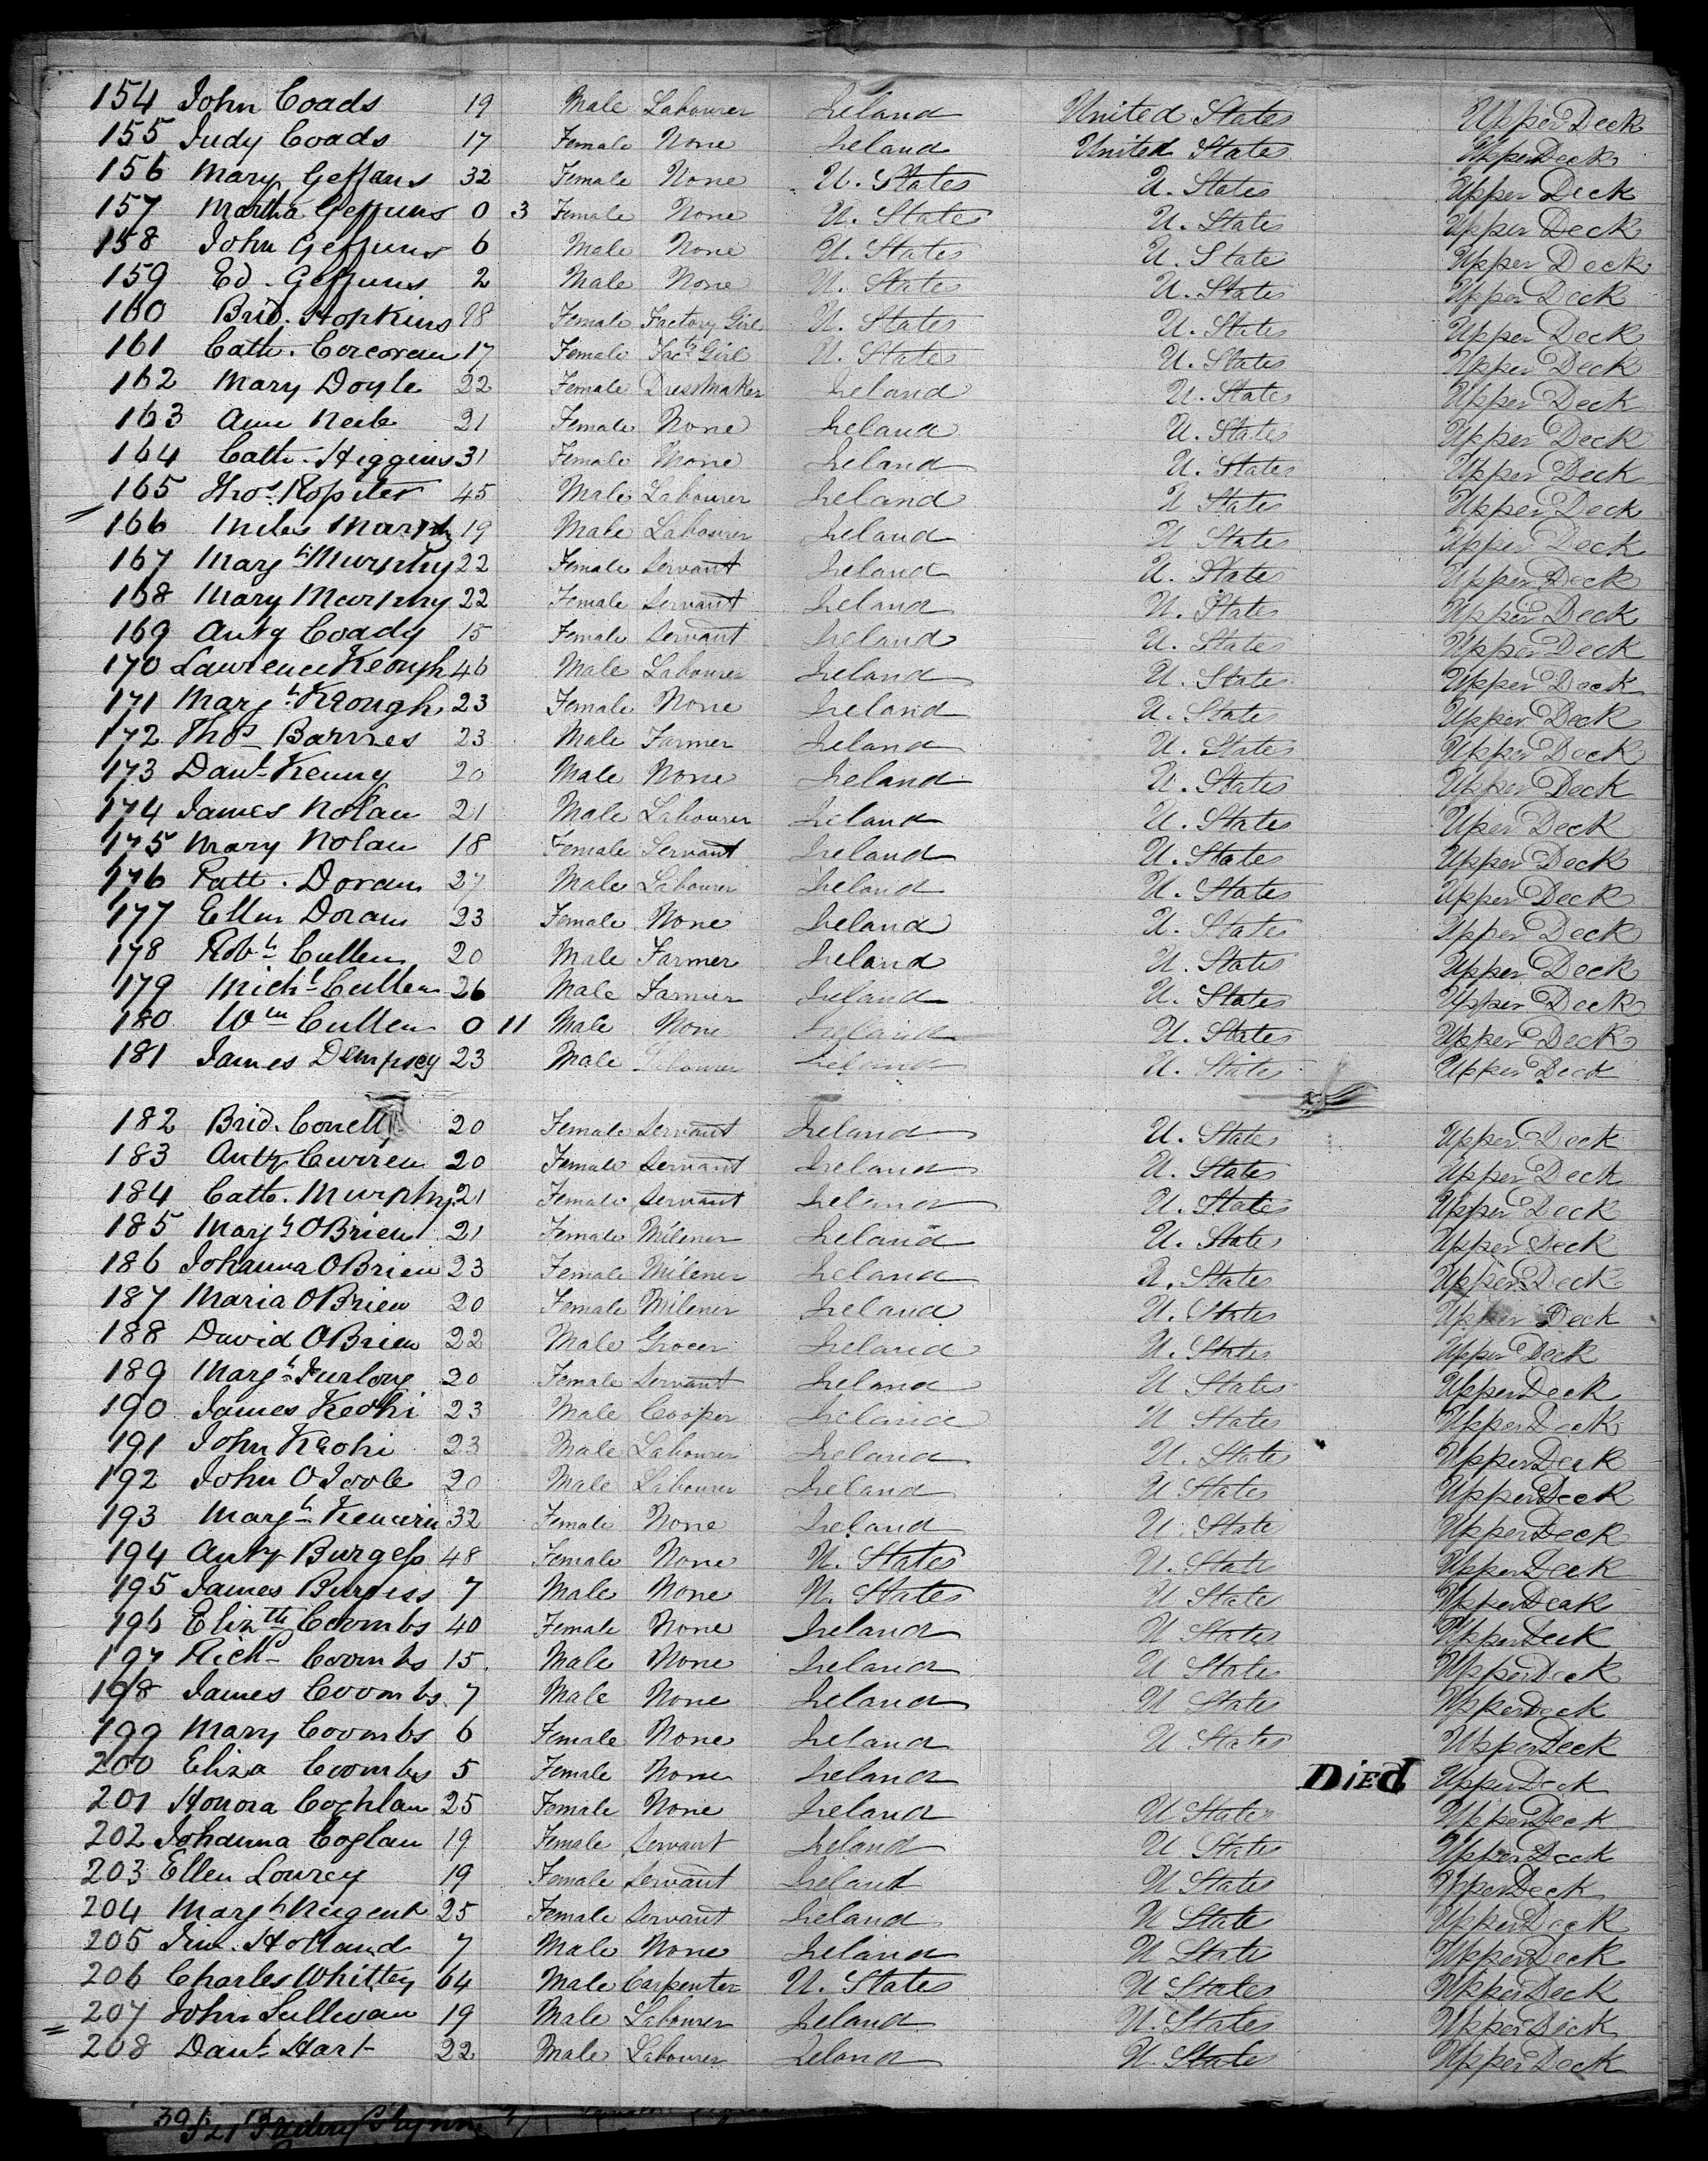 154 John Coads 19 Male Labourer Ireland United States Upper Deck
155 Judy Coads 17 Female None Ireland United States Upper Deck
156 Mary Geffans 32 Female None U. States U. States Upper Deck
157 Martha Geffuns 0 3 Female None U. States U. States Upper Deck
158 John Geffuns 6 Male None U. States U. State Upper Deck
159 Ed. Geffuns 2 Male None U. States U. States Upper Deck
160 Brid. Hopkins 28 Female Factory Girl U. States U. States Upper Deck
161 Cath. Corcoran 17 Female Facty Girl U. States U. States Upper Deck
162 Mary Doyle 22 Female DressMaker Ireland U. States Upper Deck
163 Ann 21 Female None Ireland U. States Upper Deck
164 Cath. Higgins 31 Female None Ireland U. States Upper Deck
165 Thos. Rossiter 45 Male Labourer Ireland U States Upper Deck
166 Miles Murphy 19 Male Labourer Ireland U States Upper Deck
167 Margt Murphy 22 Female Servant Ireland U. States Upper Deck
168 Mary Murphy 22 Female Servant Ireland U. States Upper Deck
169 Anty Coady 15 Female Servant Ireland U. States Upper Deck
170 Lawrence Keough 46 Male Labourer Ireland U. State Upper Deck
171 Margt Keough 23 Female None Ireland U. State Upper Deck
172 Thos Barnes 23 Male Farmer Ireland U. States Upper Deck
173 Danl Kenny 20 Male None Ireland U. States Upper Deck
174 James Nolan 21 Male Labourer Ireland U. States Uper Deck
175 Mary Nolan 18 Female Servant Ireland U. States Upper Deck
176 Patt. Doran 27 Male Labourer Ireland U. States Upper Deck
177 Ellen Doran 23 Female None Ireland U. States Upper Deck
178 Robt Cullen 20 Male Farmer Ireland U. States Upper Deck
179 Michl Cullen 26 Male Farmer Ireland U. States Upper Deck
180 Wm Cullen 0 11 Male None Ireland U. States Upper Deck
181 James Dempsey 23 Male Labourer Ireland U. States Upper Deck
182 Brid. Conell 20 Female Servant Ireland U. State Upper Deck
183 Anty Curren 20 Female Servant Ireland U. States Upper Deck
184 Cath. Murphy 21 Female Servant Ireland U. States Upper Deck
185 Margt OBrien 21 Female Milener Ireland U. States Upper Deck
186 Johanna OBrien 23 Female Milener Ireland U. States Upper Deck
187 Maria OBrien 20 Female Milener Ireland U. States Upper Deck
188 David OBrien 22 Male Grocer Ireland U. States Upper Deck
189 Margt Furlong 20 Female Servant Ireland U States Upper Deck
190 James Keohi 23 Male Cooper Ireland U States Upper Deck
191 John Keohi 23 Male Labourer Ireland U. States Upper Deck
192 John OToole 20 Male Labourer Ireland U States Upper Deck
193 Margt 32 Female None Ireland U. State Upper Deck
194 Anty Burgess 48 Female None U. States U. State Upper Deck
195 James Burgess 7 Male None U. States U State Upper Deck
196 Elizth Coombs 40 Female None Ireland U States Upper Deck
197 Richd Coombs 15 Male None Ireland U States Upper Deck
198 James Coombs 7 Male None Ireland U States Upper Deck
199 Mary Coombs 6 Female None Ireland U States Upper Deck
200 Eliza Coombs 5 Female None Ireland Died Upper Deck
201 Honora Coghlan 25 Female None Ireland U States Upper Deck
202 Johanna Coglan 19 Female Servant Ireland U States Upper Deck
203 Ellen Lowrey 19 Female Servant Ireland U States Upper Deck
204 Margt Nugent 25 Female Servant Ireland U State Upper Deck
205 Jno. Holland 7 Male None Ireland U State Upper Deck
206 Charles Whitty 64 Male Carpenter U. States U States Upper Deck
207 John Sullivan 19 Male Labourer Ireland U. States Upper Deck
208 Danl Hart 22 Male Labourer Ireland U. State Upper Deck